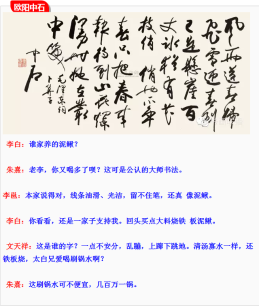 欧阳中石
风雨送春归
飞雪迎春到
已是悬崖百
丈冰犹有花
枝俏俏也不争
春只把春来
报待到山花烂
漫时她在丛
中笑
毛泽东词
卜算子
中石
李白：谁家养的泥鳅?
朱熹：老李，你又喝多了呗？这可是公认的大师书法。
李邕：本家说得对，线条油滑、光洁，留不住笔，还真 像泥鳅。
李白：你看看，还是一家子支持我。回头买点大料烧铁 板泥鳅。
文天祥：这是谁的字？一点不安分，乱蹦，上蹿下跳地，清汤寡水一样，还
铁板烧，太白兄爱喝刷锅水啊？
朱熹：这刷锅水可不便宜，几百万一锅。